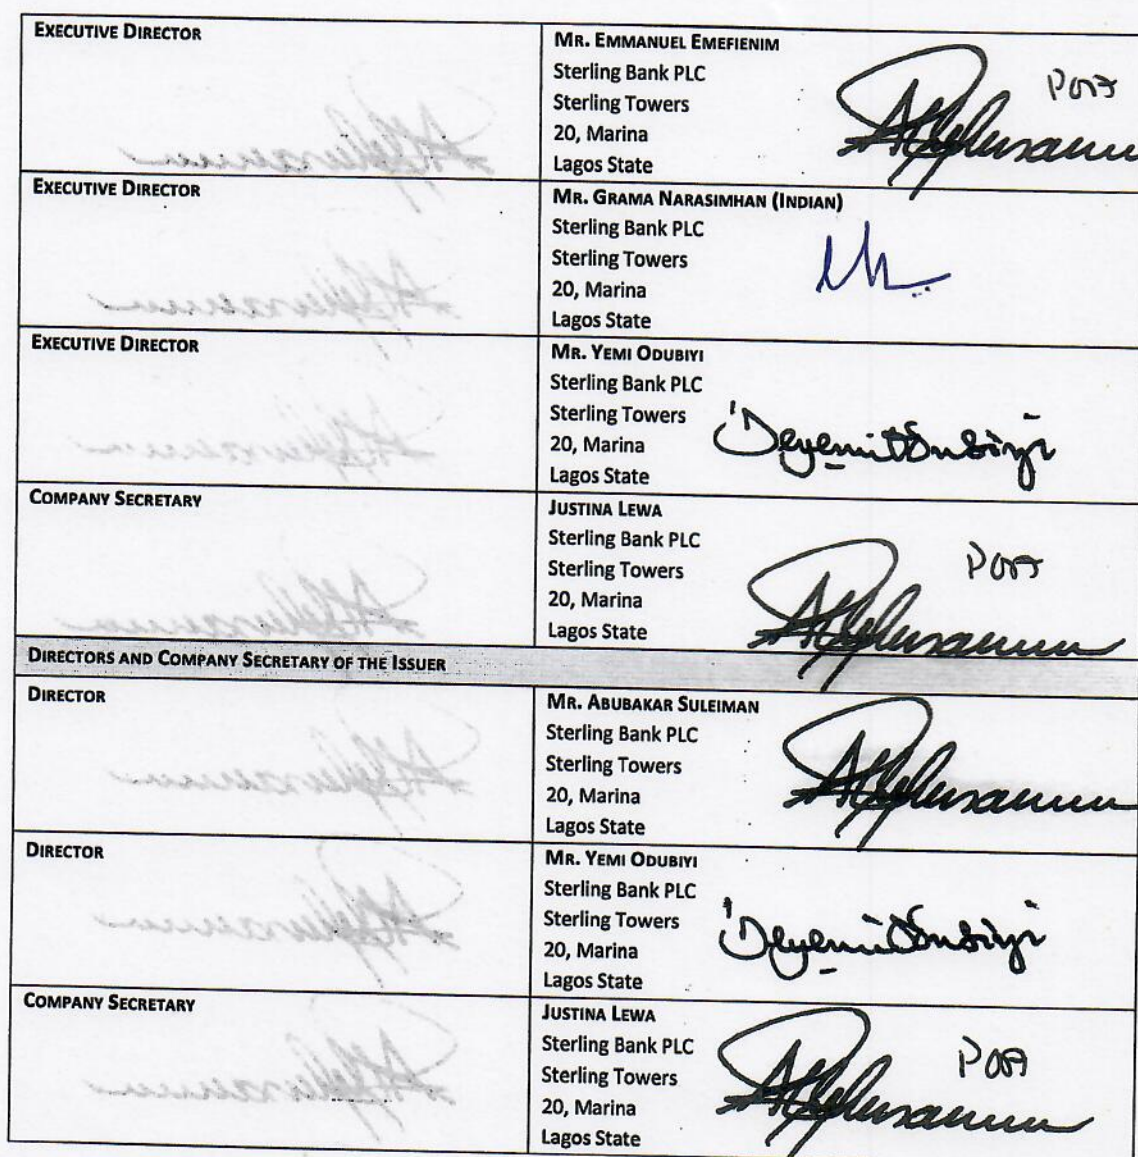 EXECUTIVE DIRECTOR
MR. EMMANUEL EMEFIENIM
Sterling Bank PLC
Sterling Towers
20, Marina
Lagos State
EXECUTIVE DIRECTOR
MR. GRAMA NARASIMHAN (INDIAN)
Sterling Bank PLC
Sterling Towers
20, Marina
Lagos State
EXECUTIVE DIRECTOR
MR. YEMI ODUBIYI
Sterling Bank PLC
Sterling Towers
20, Marina
Lagos State
COMPANY SECRETARY
JUSTINA LEWA
Sterling Bank PLC
Sterling Towers
20, Marina
Lagos State
DIRECTORS AND COMPANY SECRETARY OF THE ISSUER
DIRECTOR
MR. ABUBAKAR SULEIMAN
Sterling Bank PLC
Sterling Towers
20, Marina
Lagos State
DIRECTOR
MR. YEMI ODUBIYI
Sterling Bank PLC
Sterling Towers
20, Marina
Lagos State
COMPANY SECRETARY
JUSTINA LEWA
Sterling Bank PLC
Sterling Towers
20, Marina
Lagos State